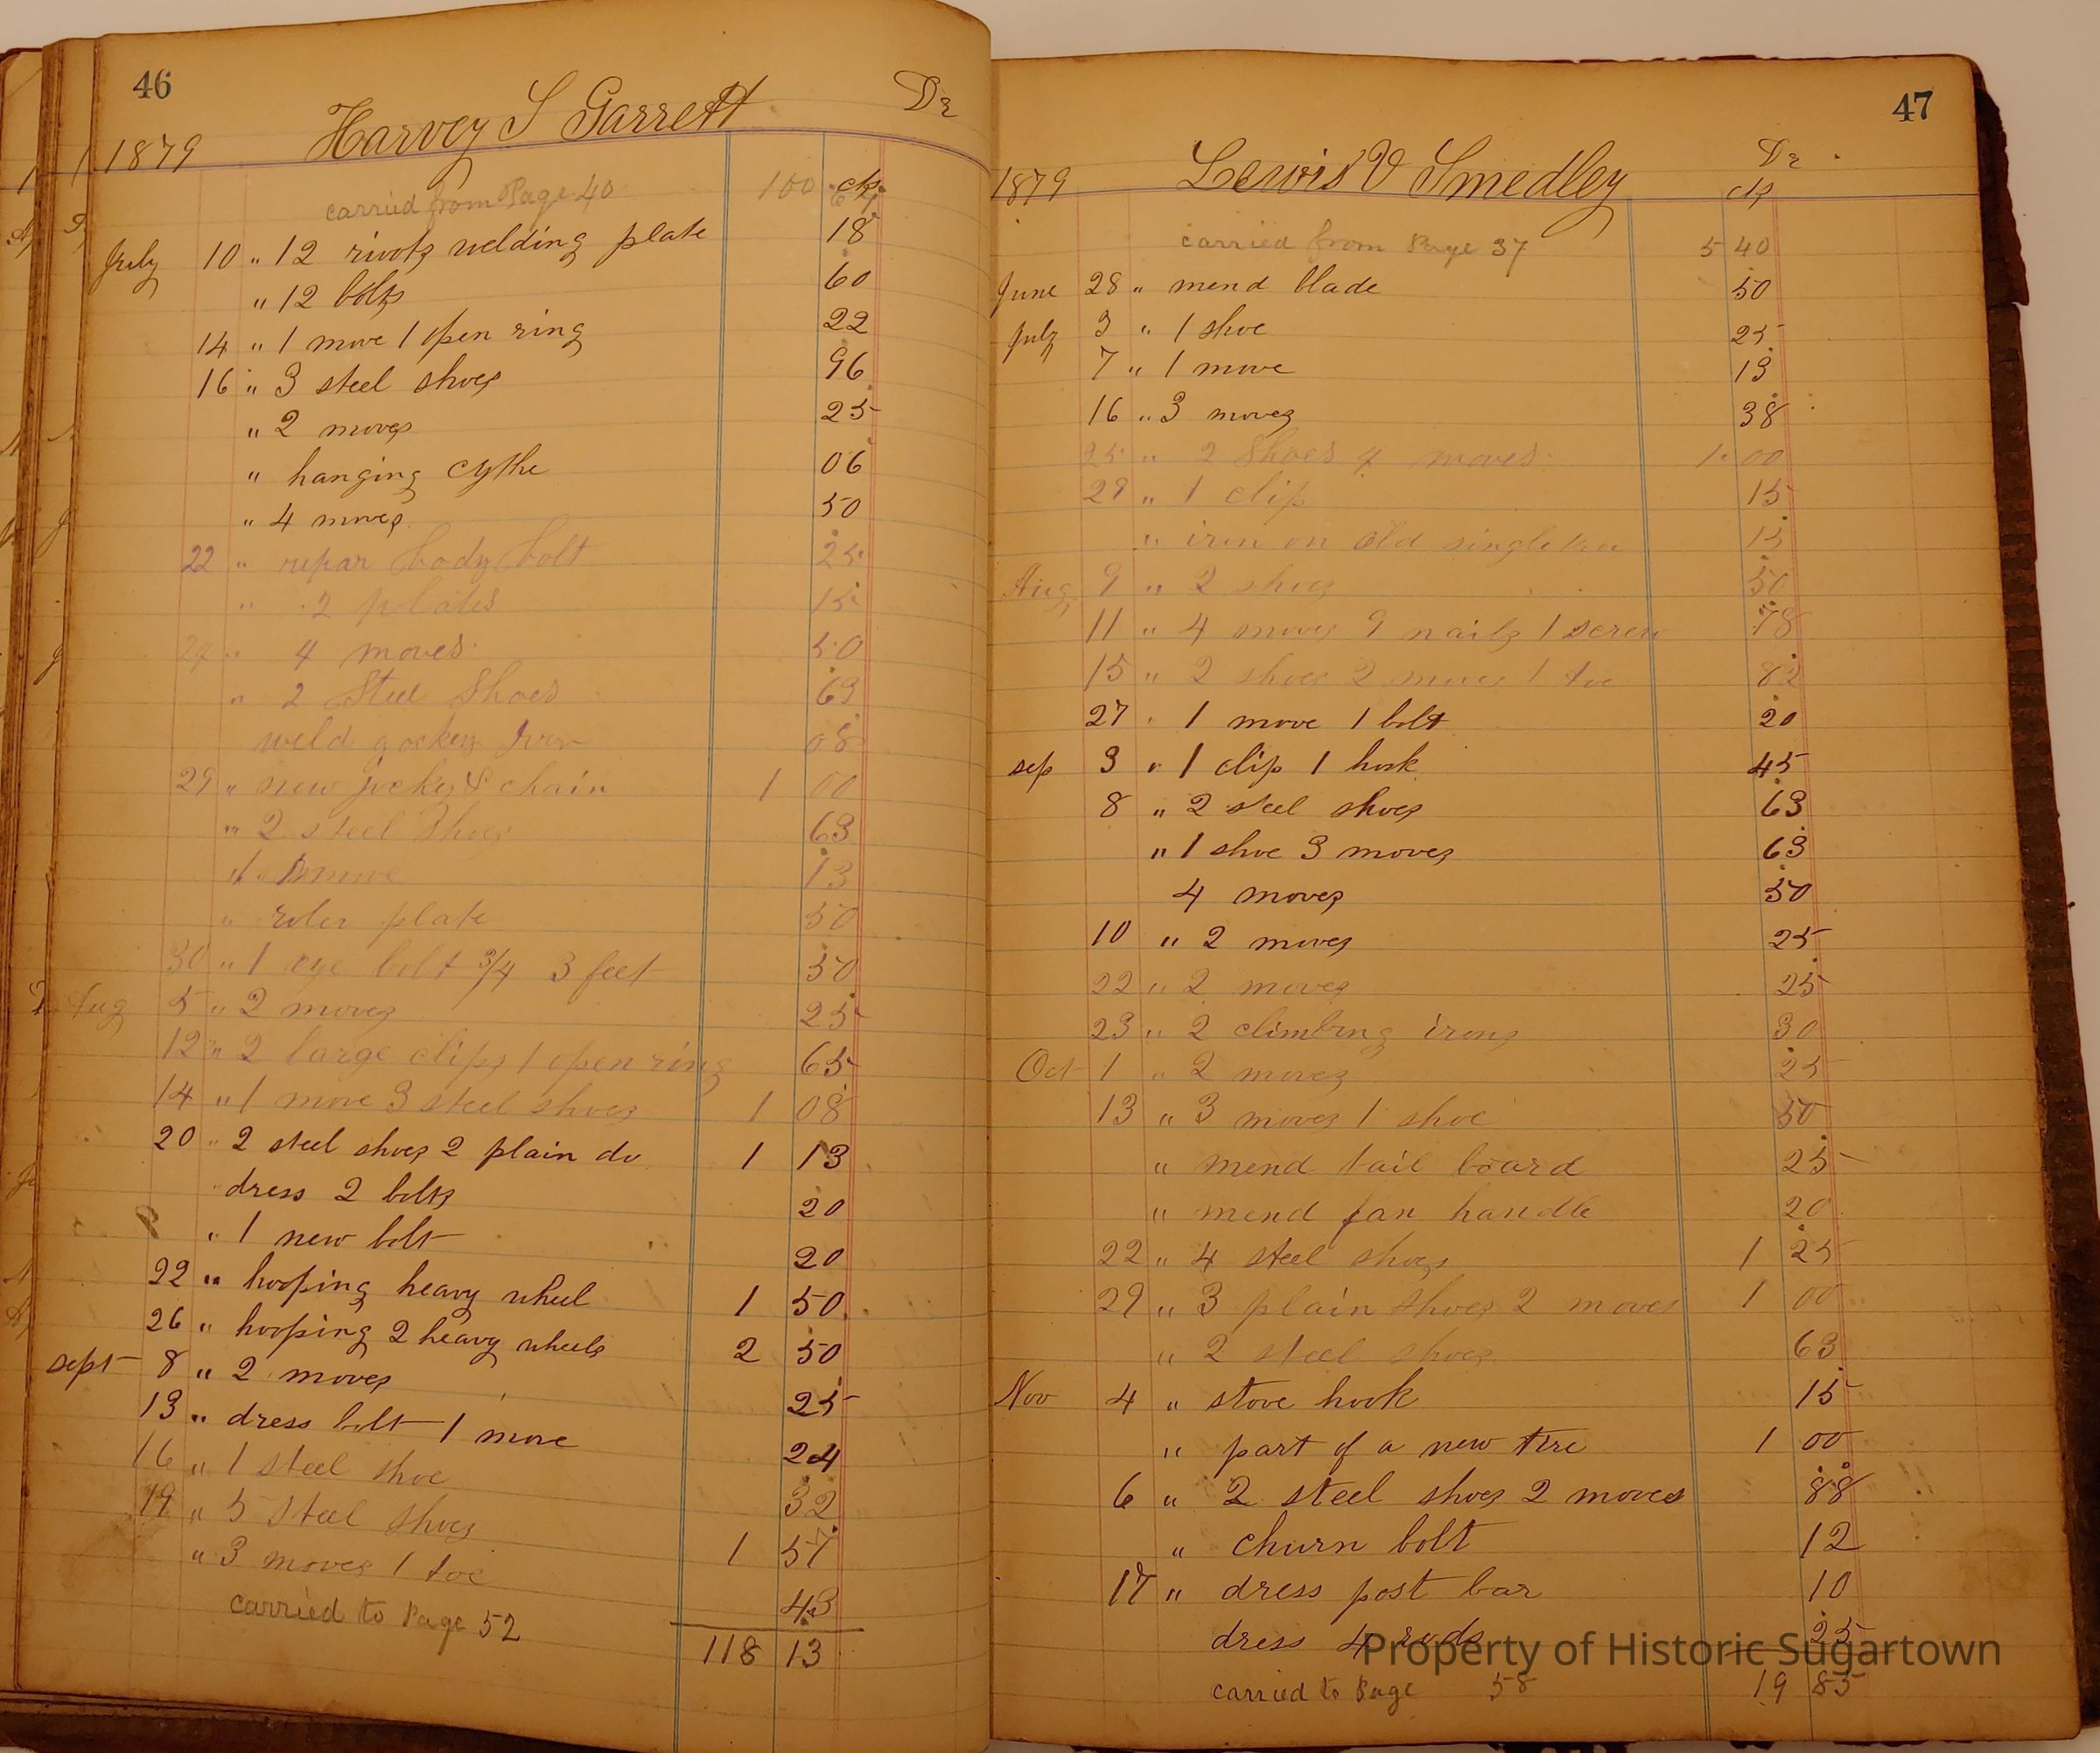 46
Harvey S Garrett Dr
1879
carried from Page 40 100 cts
July 10 " 12 rivots welding plate 18
" 12 bolts 60
14 " 1 move 1 open ring 22
16 " 3 steel shoes 96
" 2 moves 25
" hanging cythe 06
" 4 moves 50
22 " repar body bolt 25
" 2 plates 15
" 4 moves 50
" 2 Steel Shoes 63
weld gockey Iron 08
29 " new jocky & chain 1 00
" 2 steel Shoes 63
move 13
" roler plate 50
30 " 1 eye bolt 3/4 3 feet 50
Aug 5 " 2 moves 25
12 " 2 large clips 1 open ring 65
14 " 1 move 3 steel shoes 1 08
20 " 2 steel shoes 2 plain do 1 13
dress 2 bolts 20
" 1 new bolt 20
22 " hooping heavy wheel 1 50
26 " hooping 2 heavy wheels 2 50
sept 8 " 2 moves 25
13 " dress bolt 1 move 24
16 " 1 steel shoe 32
19 " 5 steel shoes 1 57
" 3 moves 1 toe 43
carried to Page 52
118 13
47
Lewis V Smedley Dr
1879 cts
carried from Page 37 5 40
June 28 " mend blade 50
July 3 " 1 shoe 25
7 " 1 move 13
16 " 3 moves 38
25 " 2 Shoes 4 moves 1.00
29 " 1 clip 15
" iron on old singletree 15
Aug 9 " 2 shoes 50
11 " 4 moves 9 nails 1 screw 78
15 " 2 shoes 2 moves 1 toe 82
27 " 1 move 1 bolt 20
sep 3 " 1 clip 1 hook 45
8 " 2 steel shoes 63
" 1 shoe 3 moves 63
4 moves 50
10 " 2 moves 25
22 " 2 moves 25
23 " 2 climbing irons 30
Oct 1 " 2 moves 25
13 " 3 moves 1 shoe 50
" mend tail board 25
" mend fan handle 20
22 " 4 steel shoes 1 25
29 " 3 plain shoes 2 moves 1 00
" 2 steel shoes 63
Nov 4 " stove hook 15
" part of a new tire 1 00
6 " 2 steel shoes 2 moves 88
" churn bolt 12
17 " dress post bar 10
dress 4 rods 25
carried to Page 58 19 85
Property of Historic Sugartown